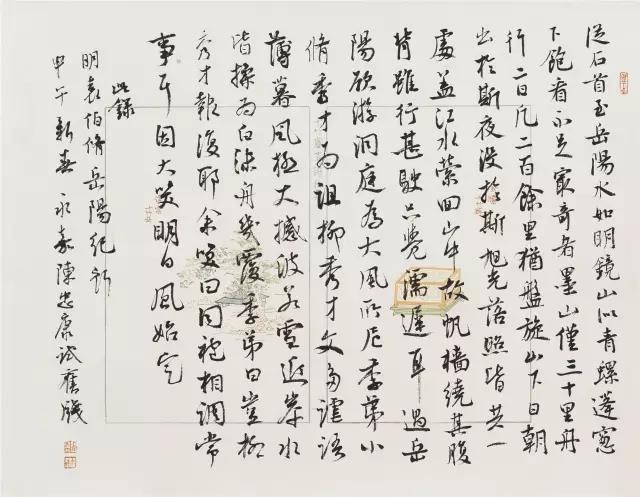 從石首至岳陽水如明鏡山似青螺蓬窗
下飽看不足最奇者墨山僅三十里舟
行二日凡二百餘里猶盤旋山下日朝
出於斯夜没於斯旭光落照皆共一
處蓋江水縈回山中故帆檣繞其腹
背雖行甚駛只覺濡遲耳過岳
陽欲游洞庭為大風所尼季弟小
脩秀才為詛柳秀才文多謔語
薄暮風極大撼波若雪近岸水
皆揉為白沫舟幾覆季弟曰豈柳
秀才報復耶余笑曰同袍相調常
事耳因大笑明日風始定
此錄
明袁伯脩岳陽紀行
甲午新春永嘉陳忠康試舊牋